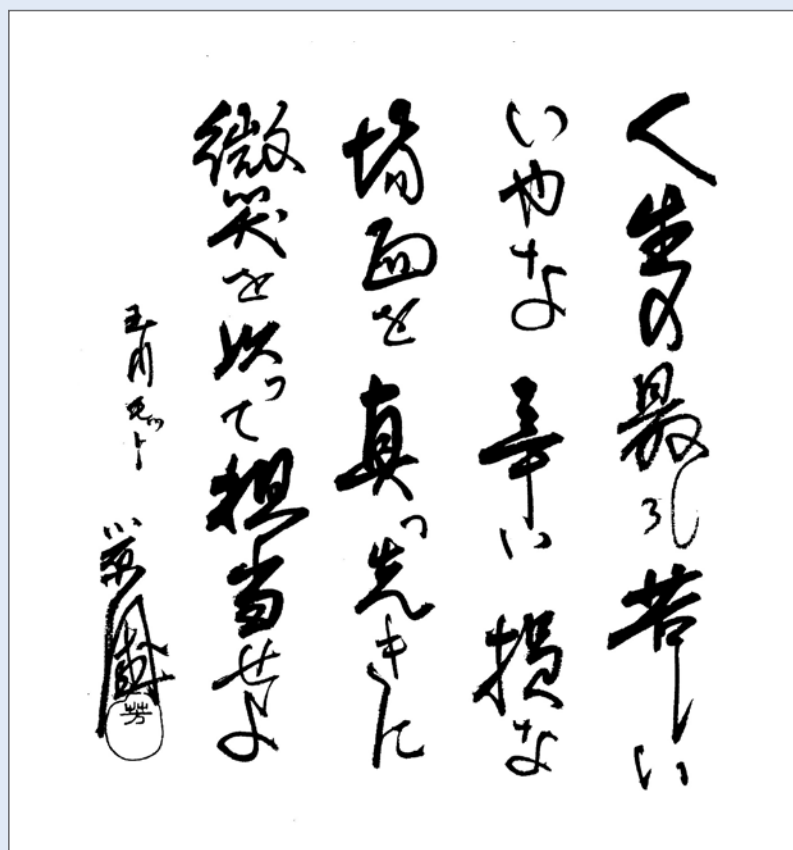 人生の最も苦しい
いやな 辛い 損な
場面を 真っ先きに
微笑を以って担当せよ
玉川

芳